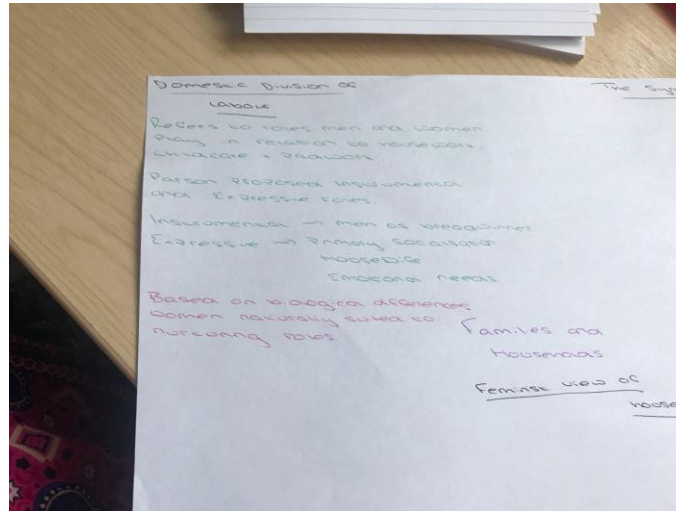 Domestic Division of
Labour
Refers to roles men and women
Play in relation to housework,
childcare + Paidwork
Parson Proposed Instrumental
and Expressive roles.
Instrumental → men as breadwinner
Expressive → Primary Socalisation
Housewife
Emotional needs
Based on biological differences
women naturally suited to
nurturing roles.
The
Familes and
Households
Feminist view of
house